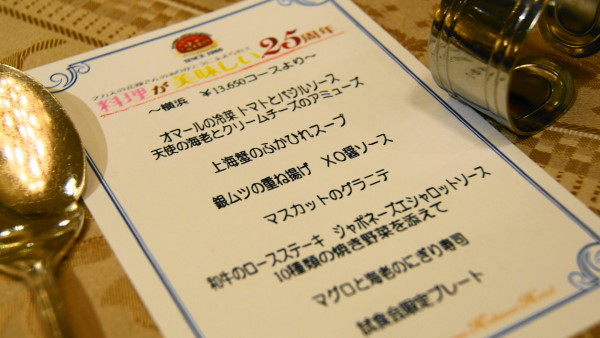 SINCE 1986
料理が美味しい25周年
～横浜 ¥13,650コースより～
オマールの冷菜 トマトとバジルソース
天使の海老とクリームチーズのアミューズ
上海蟹のふかひれスープ
銀ムツの重ね揚げ XO醤ソース
マスカットのグラニテ
和牛のロースステーキ ジャポネーズエシャロットソース
10種類の焼き野菜を添えて
マグロと海老のにぎり寿司
試食会限定プレート